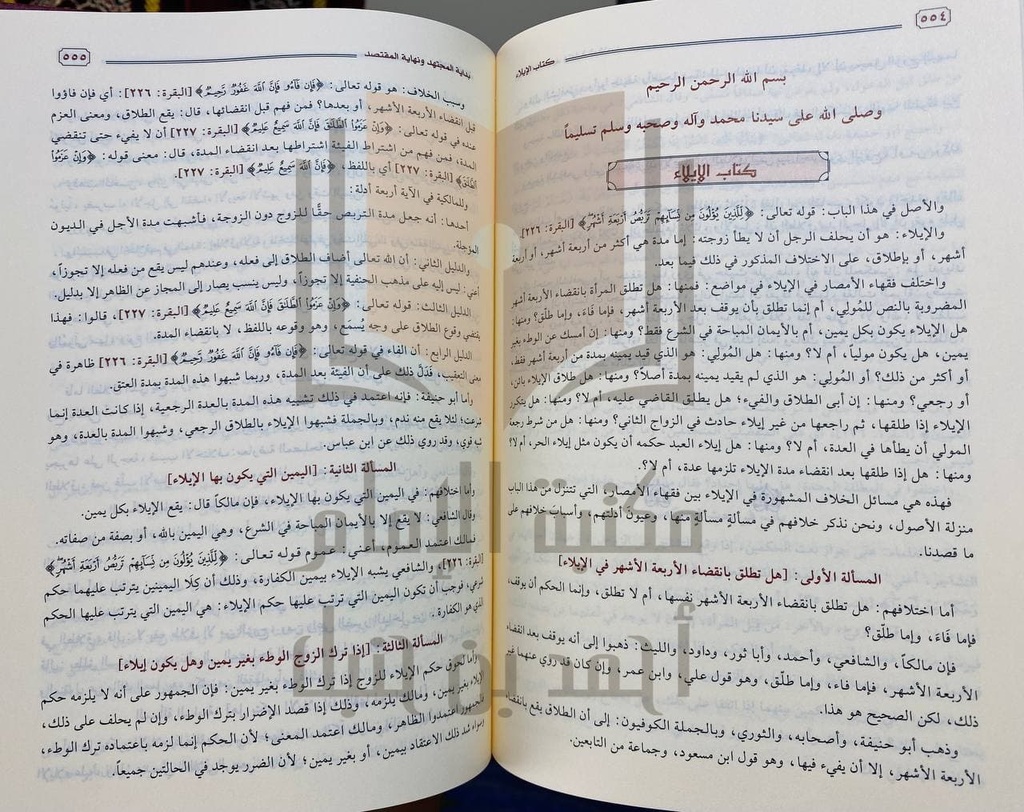 ٥٥٤
كتاب الإيلاء
بسم الله الرحمن الرحيم
وصلى الله على سيدنا محمد وآله وصحبه وسلم تسليماً
كتاب الإيلاء
والأصل في هذا الباب: قوله تعالى: ﴿لِّلَّذِينَ يُؤْلُونَ مِن نِّسَآئِهِمْ تَرَبُّصُ أَرْبَعَةِ أَشْهُرٍ﴾ [البقرة: ٢٢٦].
والإيلاء: هو أن يحلف الرجل أن لا يطأ زوجته: إما مدة هي أكثر من أربعة أشهر، أو أربعة
أشهر، أو بإطلاق، على الاختلاف المذكور في ذلك فيما بعد.
واختلف فقهاء الأمصار في الإيلاء في مواضع: فمنها: هل تطلق المرأة بانقضاء الأربعة أشهر
المضروبة بالنص للمُولي، أم إنما تطلق بأن يوقف بعد الأربعة أشهر، فإما فَاءَ، وإما طلّق؟ ومنها:
هل الإيلاء يكون بكل يمين، أم بالأيمان المباحة في الشرع فقط؟ ومنها: إن أمسك عن الوطء بغير
يمين، هل يكون مولياً، أم لا؟ ومنها: هل المُولي: هو الذي قيد يمينه بمدة من أربعة أشهر فقط،
أو أكثر من ذلك؟ أو المُولي: هو الذي لم يقيد يمينه بمدة أصلاً؟ ومنها: هل طلاق الإيلاء بائن،
أو رجعي؟ ومنها: إن أبى الطلاق والفيء؛ هل يطلق القاضي عليه، أم لا؟ ومنها: هل يتكرر
الإيلاء إذا طلقها، ثم راجعها من غير إيلاء حادث في الزواج الثاني؟ ومنها: هل من شرط رجعة
المولي أن يطأها في العدة، أم لا؟ ومنها: هل إيلاء العبد حكمه أن يكون مثل إيلاء الحر، أم لا؟
ومنها: هل إذا طلقها بعد انقضاء مدة الإيلاء تلزمها عدة، أم لا؟.
فهذه هي مسائل الخلاف المشهورة في الإيلاء بين فقهاء الأمصار، التي تتنزل من هذا الباب
منزلة الأصول، ونحن نذكر خلافهم في مسألةٍ مسألةٍ منها، وعيونَ أدلتهم، وأسبابَ خلافهم على
ما قصدنا.
المسألة الأولى: [هل تطلق بانقضاء الأربعة الأشهر في الإيلاء]
أما اختلافهم: هل تطلق بانقضاء الأربعة الأشهر نفسها، أم لا تطلق، وإنما الحكم أن يوقف،
فإما فَاءَ، وإما طلّق؟
فإن مالكاً، والشافعي، وأحمد، وأبا ثور، وداود، والليث: ذهبوا إلى أنه يوقف بعد انقضاء
الأربعة الأشهر، فإما فاء، وإما طلّق، وهو قول علي، وابن عمر، وإن كان قد روي عنهما غير
ذلك، لكن الصحيح هو هذا.
وذهب أبو حنيفة، وأصحابه، والثوري، وبالجملة الكوفيون: إلى أن الطلاق يقع بانقضاء
الأربعة الأشهر، إلا أن يفيء فيها، وهو قول ابن مسعود، وجماعة من التابعين.
بداية المجتهد ونهاية المقتصد
٥٥٥
وسبب الخلاف: هو قوله تعالى: ﴿فَإِن فَآءُو فَإِنَّ ٱللَّهَ غَفُورٌ رَّحِيمٌ﴾ [البقرة: ٢٢٦]: أي فإن فاؤوا
قبل انقضاء الأربعة الأشهر، أو بعدها؟ فمن فهم قبل انقضائها، قال: يقع الطلاق، ومعنى العزم
عنده في قوله تعالى: ﴿وَإِنْ عَزَمُوا۟ ٱلطَّلَـٰقَ فَإِنَّ ٱللَّهَ سَمِيعٌ عَلِيمٌ﴾ [البقرة: ٢٢٧] أن لا يفيء حتى تنقضي
المدة، فمن فهم من اشتراط الفيئة اشتراطها بعد انقضاء المدة، قال: معنى قوله: ﴿وَإِنْ عَزَمُوا۟
ٱلطَّلَـٰقَ﴾ [البقرة: ٢٢٧] أي باللفظ، ﴿فَإِنَّ ٱللَّهَ سَمِيعٌ عَلِيمٌ﴾ [البقرة: ٢٢٧].
وللمالكية في الآية أربعة أدلة:
أحدها: أنه جعل مدة التربص حقًّا للزوج دون الزوجة، فأشبهت مدة الأجل في الديون
المؤجلة.
والدليل الثاني: أن الله تعالى أضاف الطلاق إلى فعله، وعندهم ليس يقع من فعله إلا تجوزاً،
أعني: ليس إليه على مذهب الحنفية إلا تجوزاً، وليس ينسب يصار إلى المجاز عن الظاهر إلا بدليل.
الدليل الثالث: قوله تعالى: ﴿وَإِنْ عَزَمُوا۟ ٱلطَّلَـٰقَ فَإِنَّ ٱللَّهَ سَمِيعٌ عَلِيمٌ﴾ [البقرة: ٢٢٧]، قالوا: فهذا
يقتضي وقوع الطلاق على وجه يُسمَع، وهو وقوعه باللفظ، لا بانقضاء المدة.
الدليل الرابع: أن الفاء في قوله تعالى: ﴿فَإِن فَآءُو فَإِنَّ ٱللَّهَ غَفُورٌ رَّحِيمٌ﴾ [البقرة: ٢٢٦] ظاهرة في
معنى التعقيب، فَدَلَّ ذلك على أن الفيئة بعد المدة، وربما شبهوا هذه المدة بمدة العتق.
وأما أبو حنيفة: فإنه اعتمد في ذلك تشبيه هذه المدة بالعدة الرجعية، إذا كانت العدة إنما
شرعت؛ لئلا يقع منه ندم، وبالجملة فشبهوا الإيلاء بالطلاق الرجعي، وشبهوا المدة بالعدة، وهو
شبه قوي، وقد روي ذلك عن ابن عباس.
المسألة الثانية: [اليمين التي يكون بها الإيلاء]
وأما اختلافهم: في اليمين التي يكون بها الإيلاء، فإن مالكاً قال: يقع الإيلاء بكل يمين.
وقال الشافعي: لا يقع إلا بالأيمان المباحة في الشرع، وهي اليمين بالله، أو بصفة من صفاته.
فمالك اعتمد العموم، أعني: عموم قوله تعالى: ﴿لِّلَّذِينَ يُؤْلُونَ مِن نِّسَآئِهِمْ تَرَبُّصُ أَرْبَعَةِ أَشْهُرٍ﴾
[البقرة: ٢٢٦]، والشافعي يشبه الإيلاء بيمين الكفارة، وذلك أن كِلا اليمينين يترتب عليهما حكم
شرعي، فوجب أن تكون اليمين التي ترتب عليها حكم الإيلاء: هي اليمين التي يترتب عليها الحكم
الذي هو الكفارة.
المسألة الثالثة: [إذا ترك الزوج الوطء بغير يمين وهل يكون إيلاء]
وأما لحوق حكم الإيلاء للزوج إذا ترك الوطء بغير يمين: فإن الجمهور على أنه لا يلزمه حكم
الإيلاء بغير يمين، ومالك يلزمه، وذلك إذا قصد الإضرار بترك الوطء، وإن لم يحلف على ذلك،
فالجمهور اعتمدوا الظاهر، ومالك اعتمد المعنى؛ لأن الحكم إنما لزمه باعتماده ترك الوطء،
وسواء شد ذلك الاعتقاد بيمين، أو بغير يمين؛ لأن الضرر يوجد في الحالتين جميعاً.
مكتبة الإمام
أحمد بن حنبل